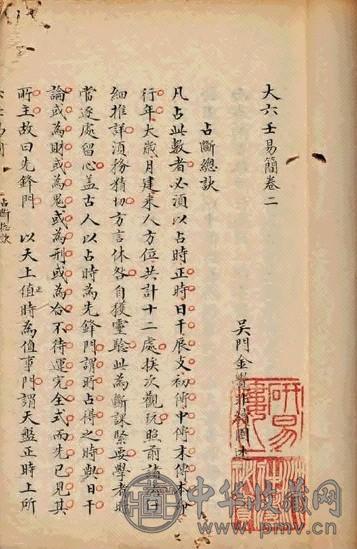 大六壬易簡卷二
吳門金
占斷總訣
凡占此數者必須以占時正時日干辰支初傳中傳末傳本命
行年太歲月建來人方位共計十二處挨次觀玩照
細推詳須務精切方言休咎自獲靈驗此為斷課緊要學者時
當逐處留心蓋古人以占時為先鋒門謂所占得之時與日干
論或為財或為鬼或為刑或為合不待運完全式而先已見其
所主故曰先鋒門 以天上值時為值事門謂天盤正時上所
占斷總訣
中华收藏网
www.pmv.cn